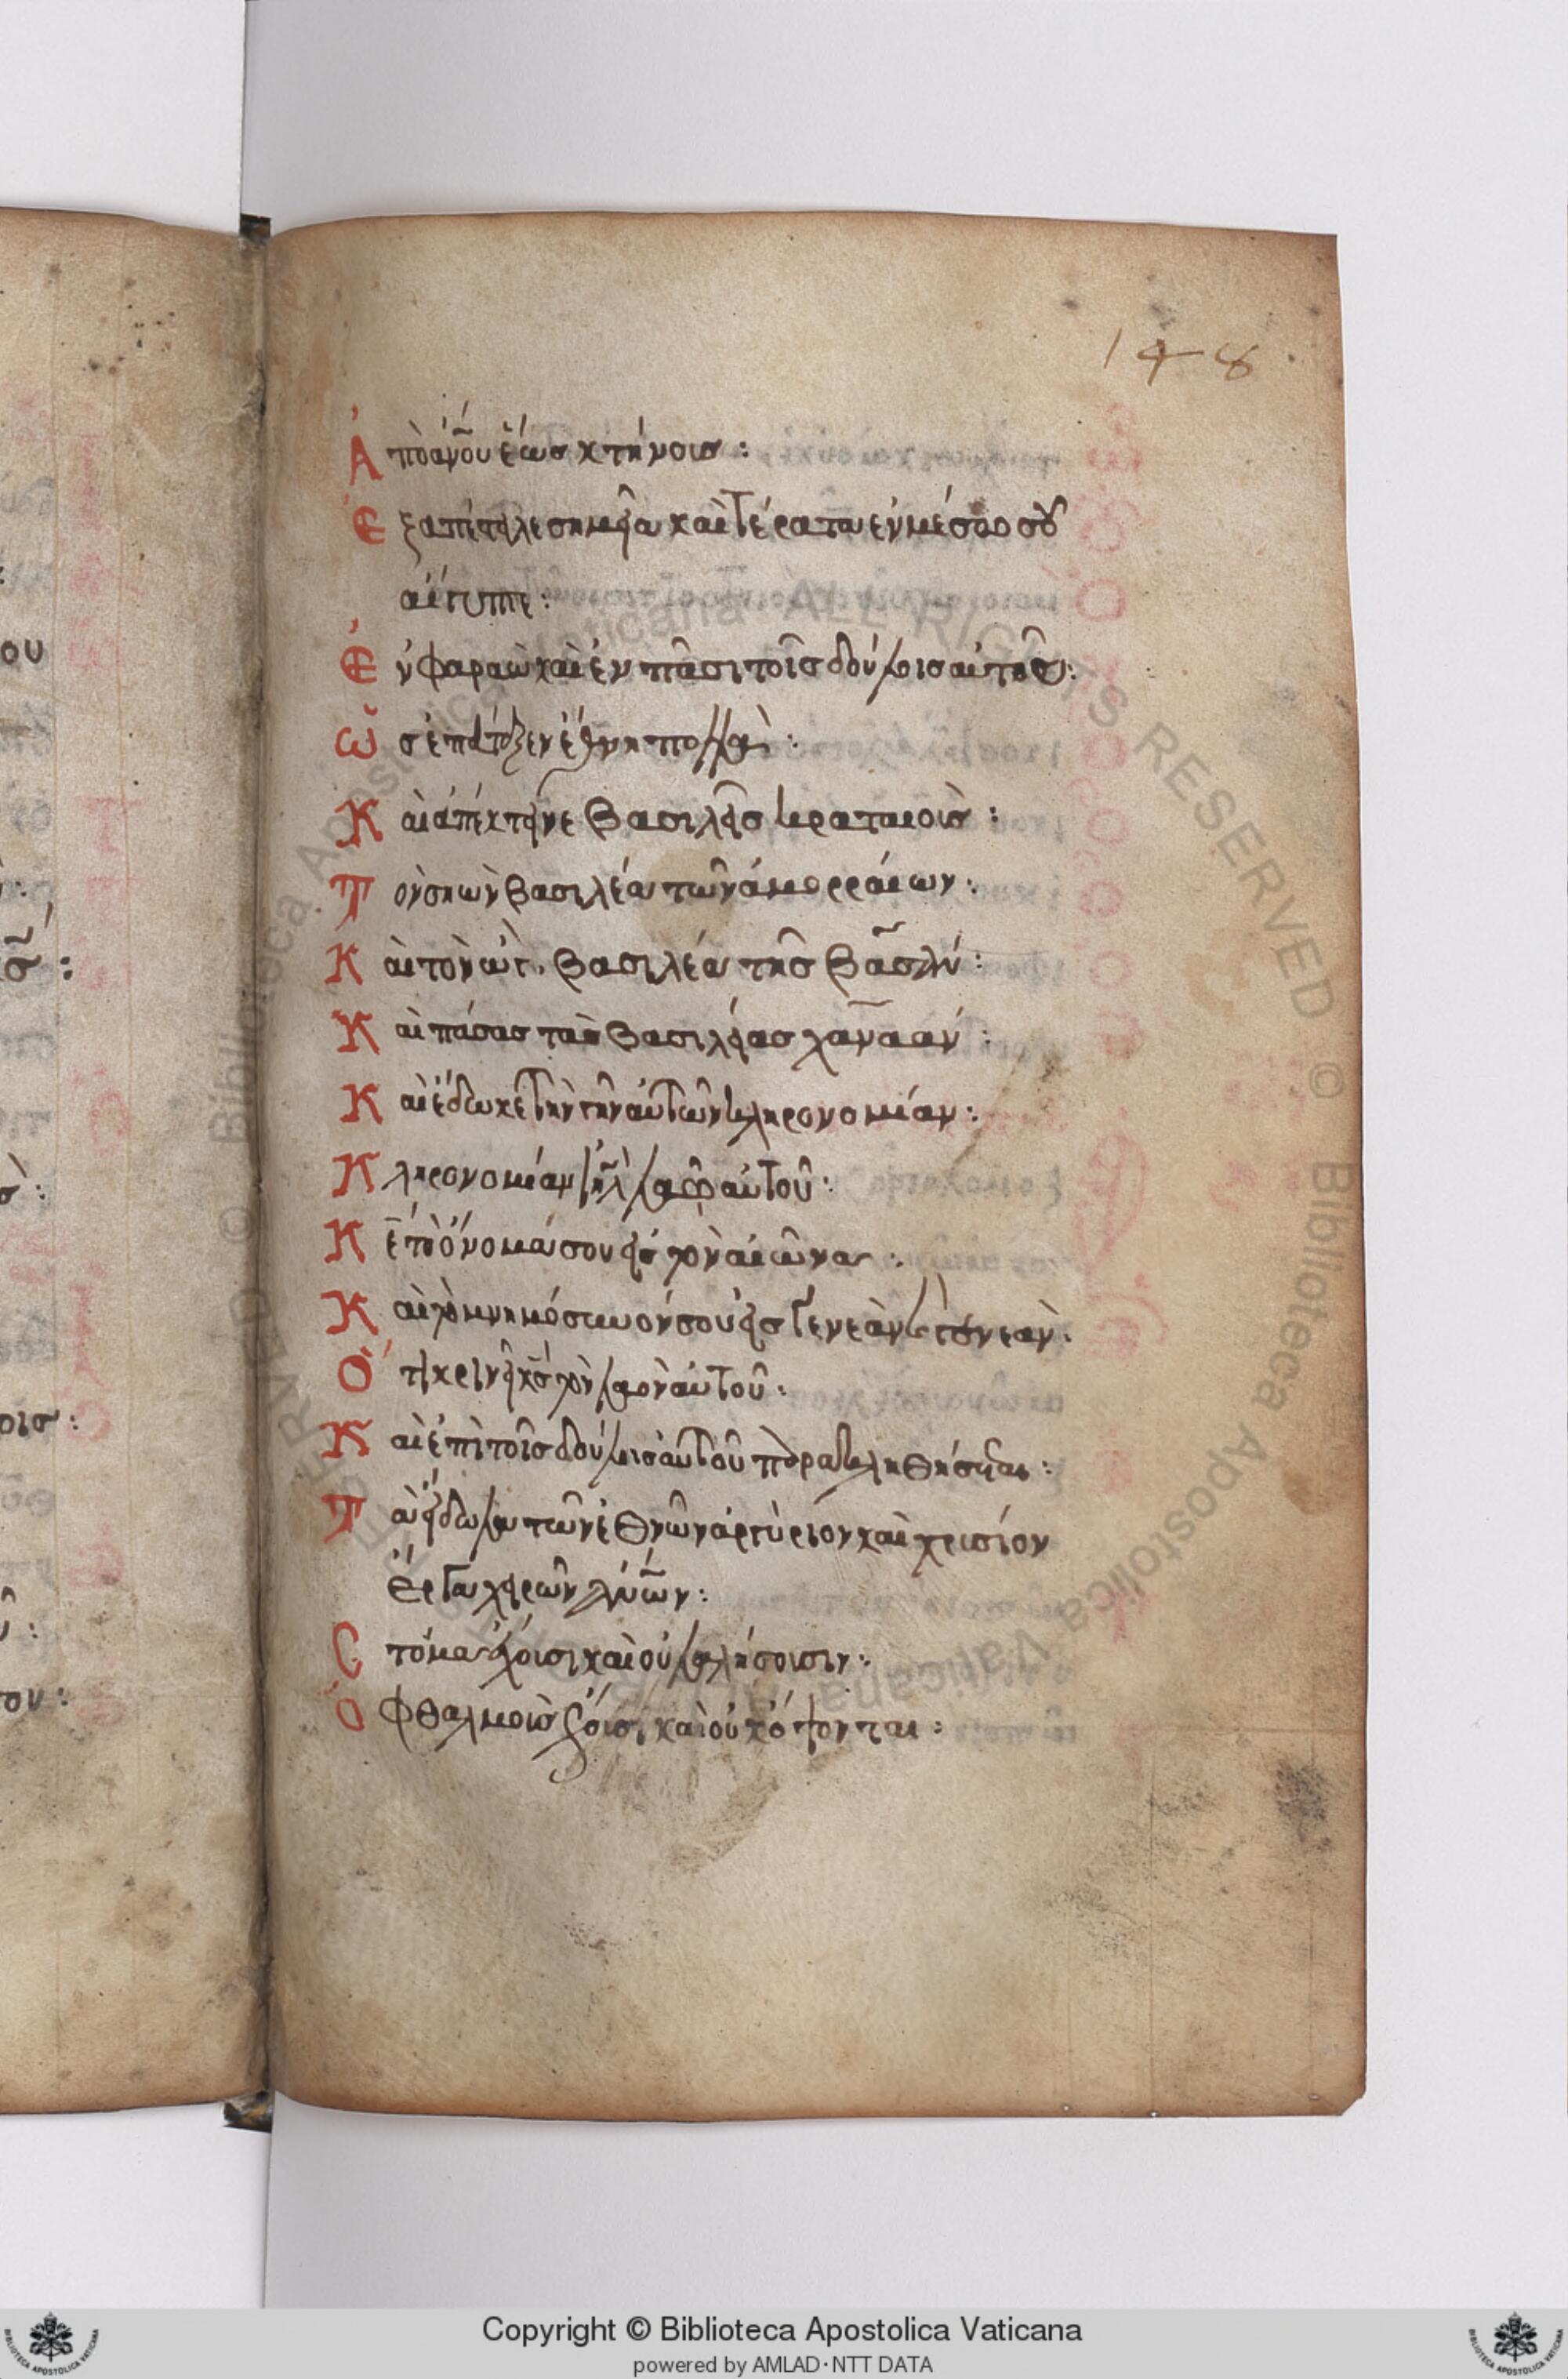 148
Ἀπὸ ἀν̅ου ἕως κτήνοις :
Ἐξαπέστειλε σημεῖα καὶ τέρατα ἐν μέσῳ σου
αἴγυπτε :
Ἐν φαραὼ καὶ ἐν πᾶσι τοῖς δούλοις αὐτοῦ :
Ὣς ἐπάταξεν ἔθνη πολλὰ :
Καὶ ἀπέκτεινε βασιλεῖς κραταιοὺς :
Τὸν σηὼν βασιλέα τῶν ἀμορραίων :
Καὶ τὸν ὢγ βασιλέα τῆς βασὰν :
Καὶ πάσας τὰς βασιλείας χαναάν :
Καὶ ἔδωκε τὴν γῆν αὐτῶν κληρονομίαν :
Κληρονομίαν ι̅η̅λ̅ λαῷ αὐτοῦ :
Κ̅ε̅ τὸ ὄνομά σου εἰς τὸν αἰῶνα :
Καὶ τὸ μνημόσυνόν σου εἰς γενεὰν καὶ γενεὰν :
Ὅτι κρινεῖ κ̅ς̅ τὸν λαὸν αὐτοῦ :
Καὶ ἐπὶ τοῖς δούλοις αὐτοῦ παρακληθήσεται :
Τὰ εἴδωλα τῶν ἐθνῶν ἀργύριον καὶ χρυσίον
ἔργα χειρῶν α̅ν̅ω̅ν :
Στόμα ἔχουσι καὶ οὐ λαλήσουσιν :
Ὀφθαλμοὺς ἔχουσι καὶ οὐκ ὄψονται :
Copyright © Biblioteca Apostolica Vaticana
powered by AMLAD·NTT DATA